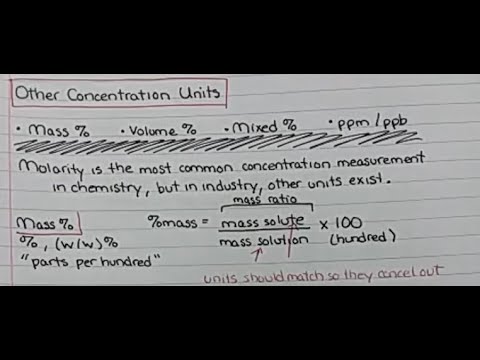 Other Concentration Units
• Mass % • Volume % • Mixed % • ppm/ppb
Molarity is the most common concentration measurement
in chemistry, but in industry, other units exist.
mass ratio
Mass% %mass = mass solute × 100
%, (w/w)% mass solution (hundred)
"parts per hundred"
units should match so they cancel out